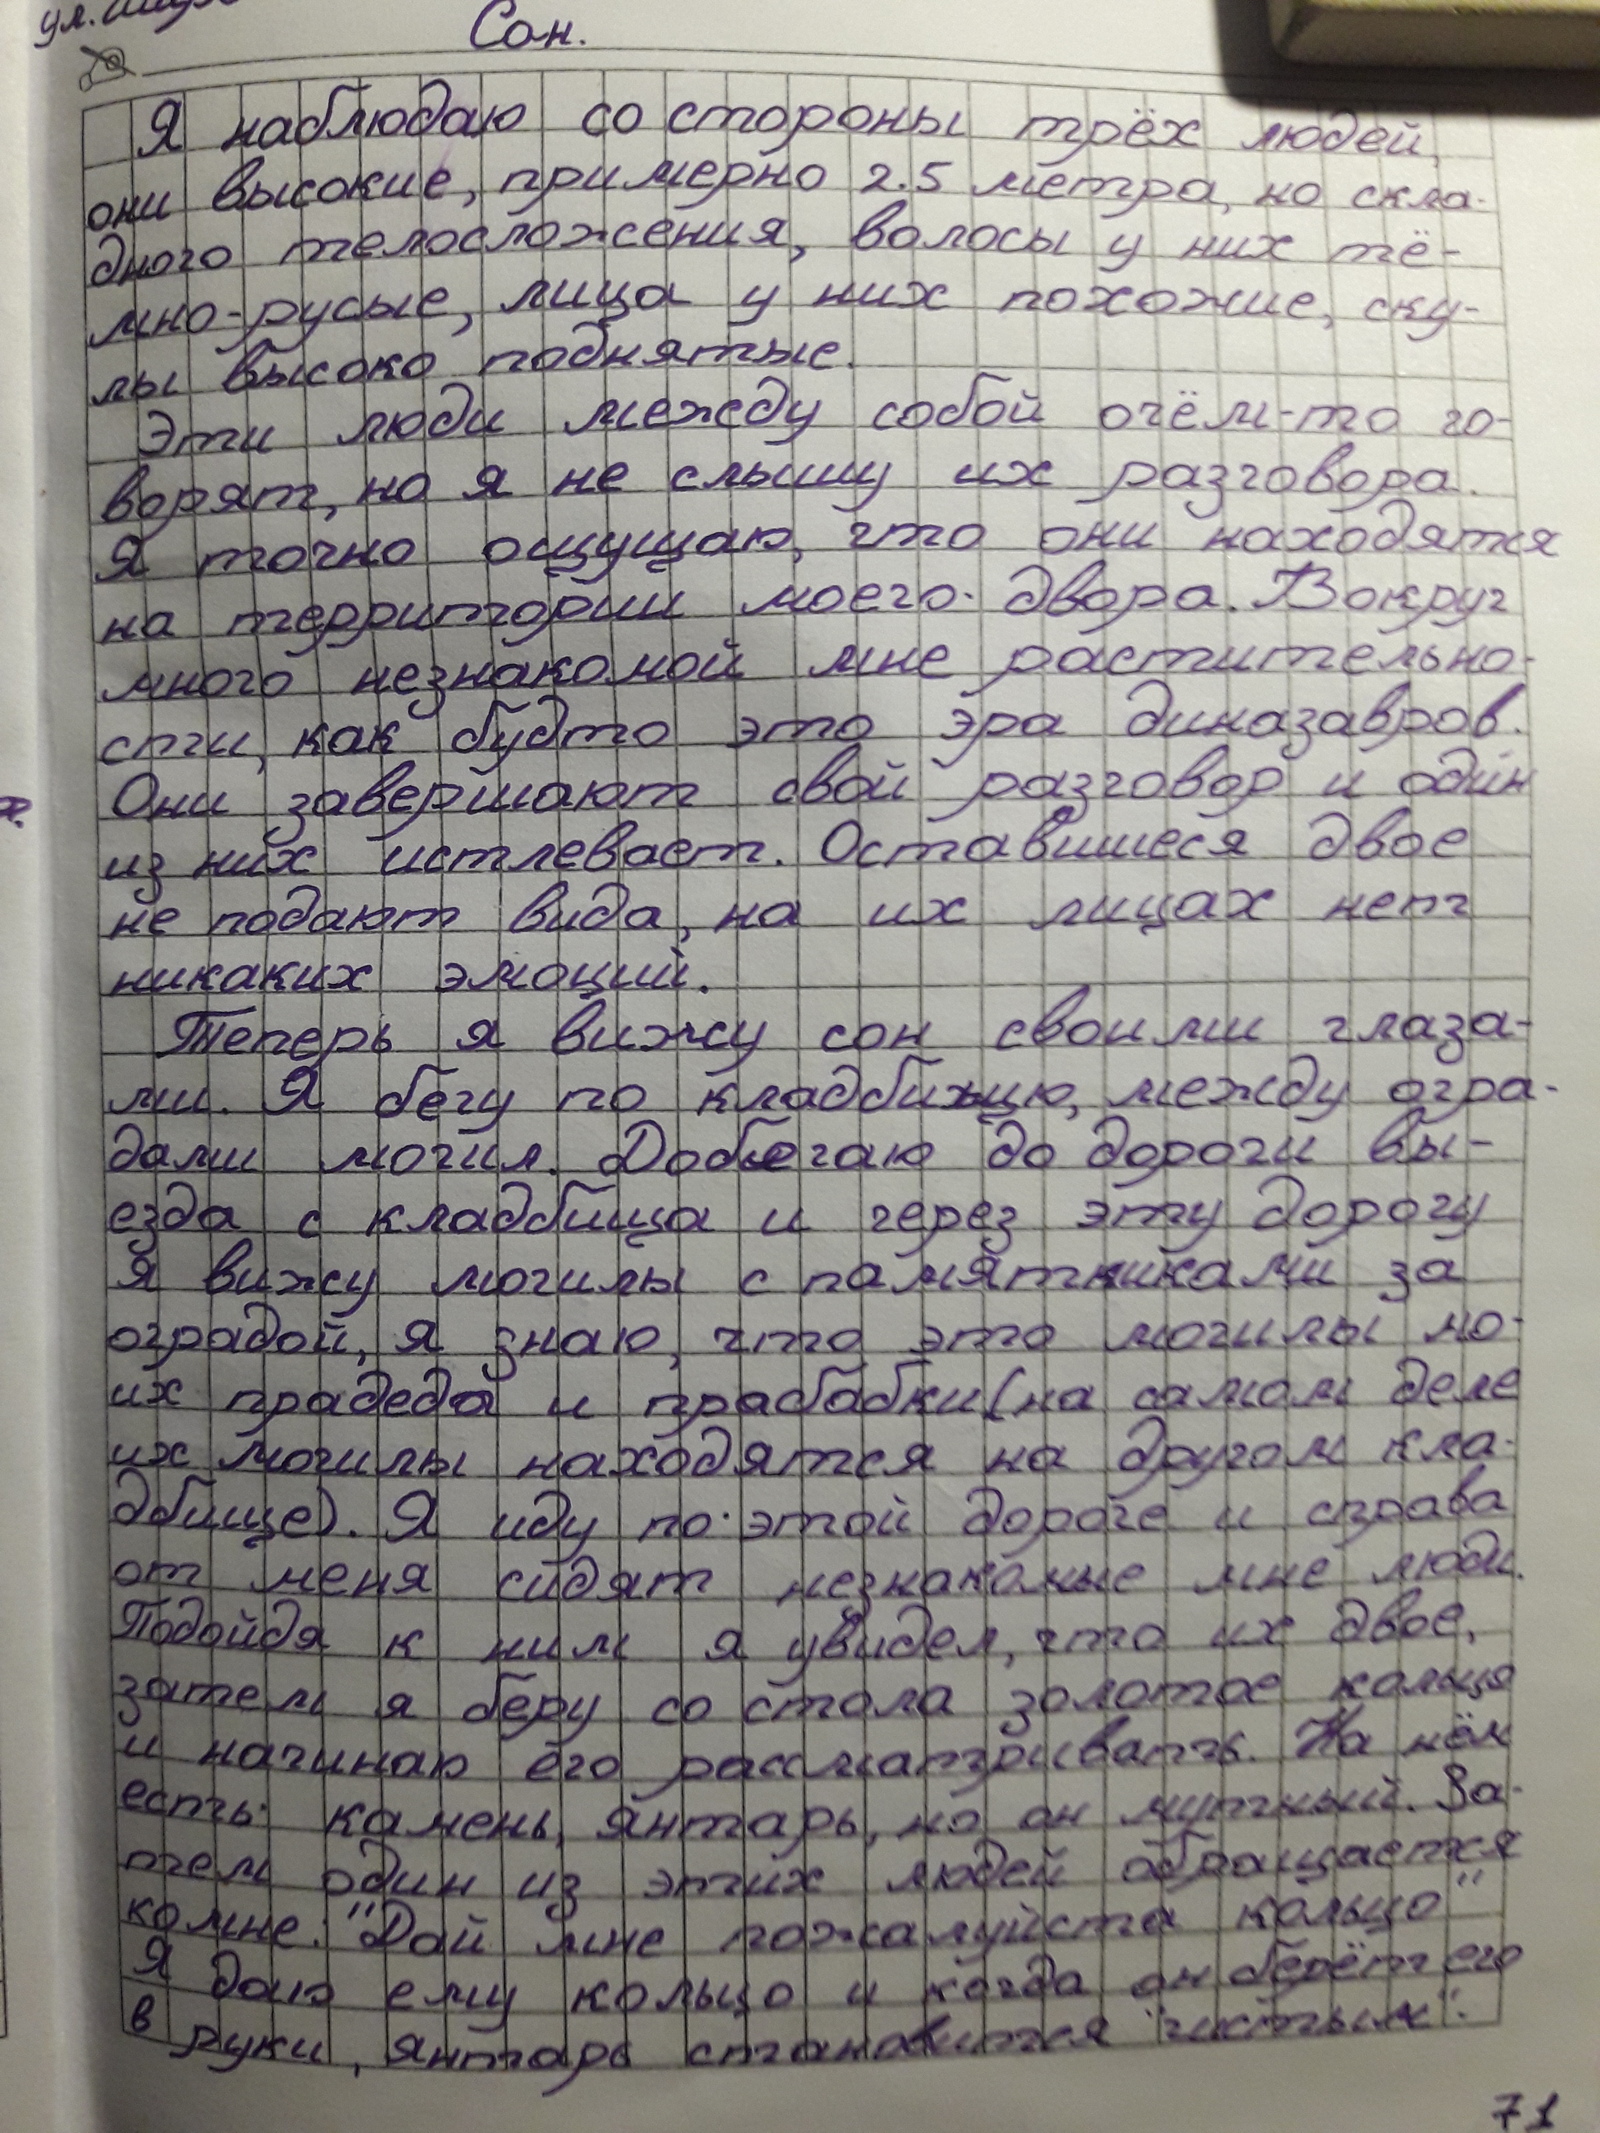 ул.
Сон.
Я наблюдаю со стороны трёх людей,
они высокие, примерно 2.5 метра, но скла-
дного телосложения, волосы у них тё-
мно-русые, лица у них похожие, ску-
лы высоко поднятые.
Эти люди между собой очём-то го-
ворят, но я не слышу их разговора.
Я точно ощущаю, что они находятся
на территории моего двора. Вокруг
много незнакомой мне растительно-
сти, как будто это эра диназавров.
Они завершают свой разговор и один
из них истлевает. Оставшиеся двое
не подают вида, на их лицах нет
никаких эмоций.
Теперь я вижу сон своими глаза-
ми. Я бегу по кладбищю, между огра-
дами могил. Добегаю до дороги вы-
езда с кладбища и через эту дорогу
я вижу могилы с памятниками за
оградой, я знаю, что это могилы мо-
их прадеда и прабабки (на самом деле
их могилы находятся на другом кла-
дбище). Я иду по этой дороге и справа
от меня сидят незнакомые мне люди.
Подойдя к ним я увидел, что их двое,
затем я беру со стола золотое кольцо
и начинаю его рассматривать. На нём
есть камень, янтарь, но он мутный. За-
тем один из этих людей обращается
ко мне: "Дай мне пожалуйста кольцо"
Я даю ему кольцо и когда он берёт его
в руки, янтарь становится "чистым".
71